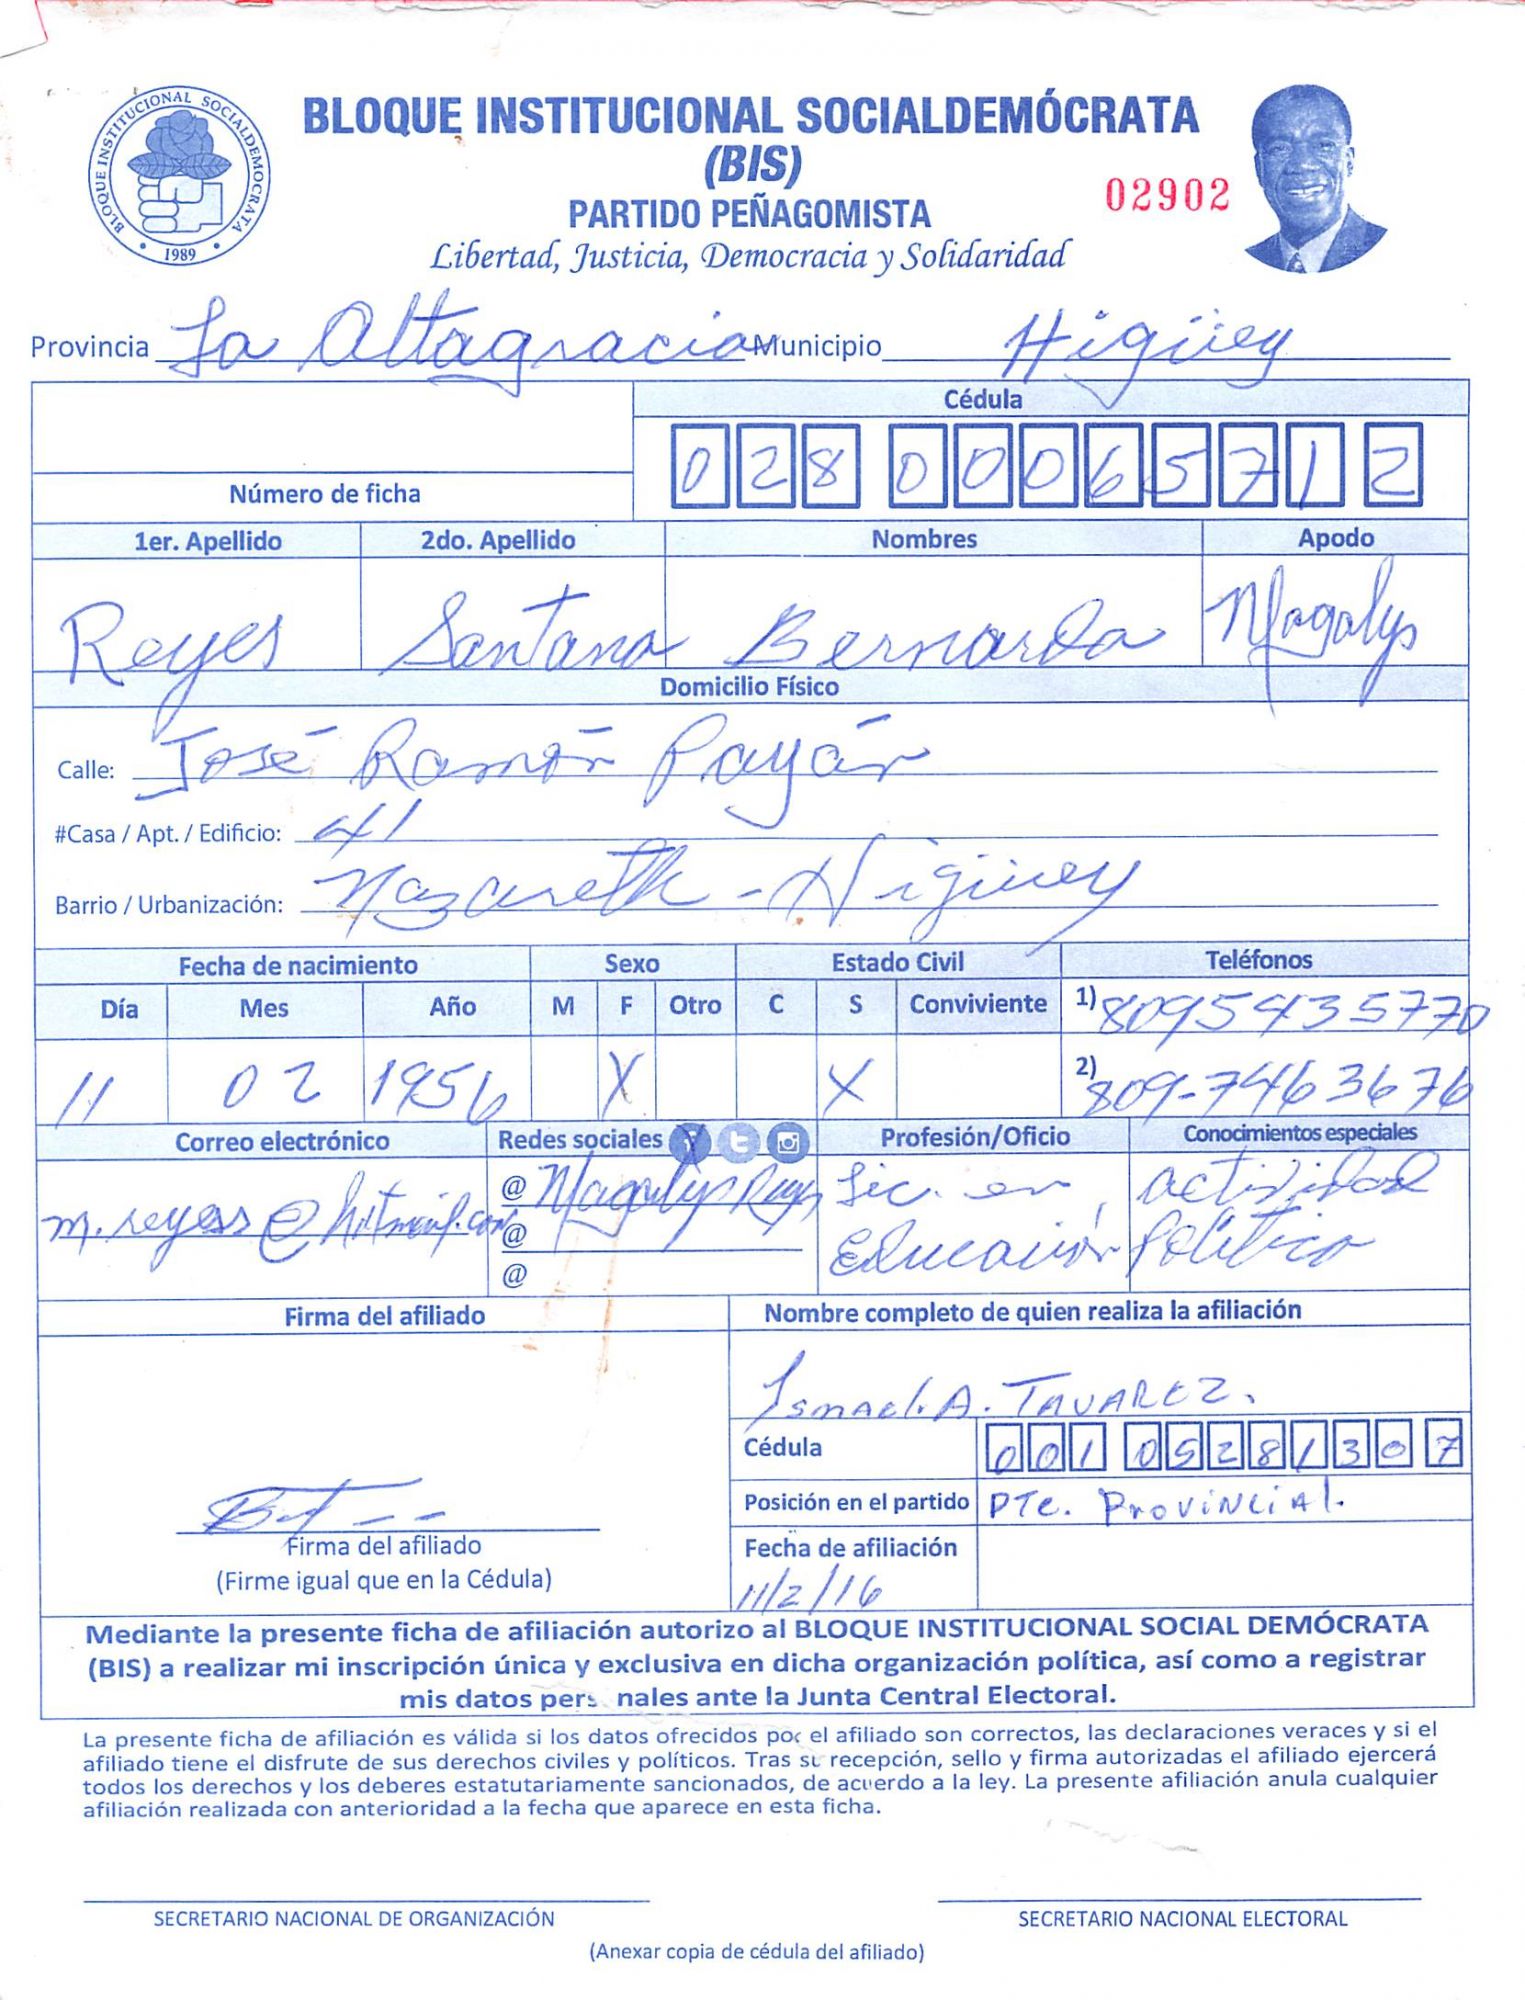 BLOQUE INSTITUCIONAL SOCIALDEMOCRATA
1989
BLOQUE INSTITUCIONAL SOCIALDEMÓCRATA
(BIS)
PARTIDO PEÑAGOMISTA
02902
Libertad, Justicia, Democracia y Solidaridad
Provincia La Altagracia Municipio Higüey
Cédula
028 0006571 2
Número de ficha
1er. Apellido 2do. Apellido Nombres Apodo
Reyes Santana Bernarda Magalys
Domicilio Físico
Calle: José Ramón Payán
#Casa / Apt. / Edificio: 41
Barrio / Urbanización: Nazareth - Higüey
Fecha de nacimiento Sexo Estado Civil Teléfonos
Día Mes Año M F Otro C S Conviviente 1) 8095435770
11 02 1956 X X 2) 809-7463676
Correo electrónico Redes sociales Profesión/Oficio Conocimientos especiales
m.reyess@hotmail.com @ Magalys Reyes Lic. en actividad
@ Educación política
@
Firma del afiliado Nombre completo de quien realiza la afiliación
Ismael.A. TAVAREZ.
Cédula 001 0528130 7
Posición en el partido PTe. Provincial.
Firma del afiliado Fecha de afiliación
(Firme igual que en la Cédula) 11/2/16
Mediante la presente ficha de afiliación autorizo al BLOQUE INSTITUCIONAL SOCIAL DEMÓCRATA
(BIS) a realizar mi inscripción única y exclusiva en dicha organización política, así como a registrar
mis datos pers nales ante la Junta Central Electoral.
La presente ficha de afiliación es válida si los datos ofrecidos por el afiliado son correctos, las declaraciones veraces y si el
afiliado tiene el disfrute de sus derechos civiles y políticos. Tras su recepción, sello y firma autorizadas el afiliado ejercerá
todos los derechos y los deberes estatutariamente sancionados, de acuerdo a la ley. La presente afiliación anula cualquier
afiliación realizada con anterioridad a la fecha que aparece en esta ficha.
SECRETARIO NACIONAL DE ORGANIZACIÓN SECRETARIO NACIONAL ELECTORAL
(Anexar copia de cédula del afiliado)